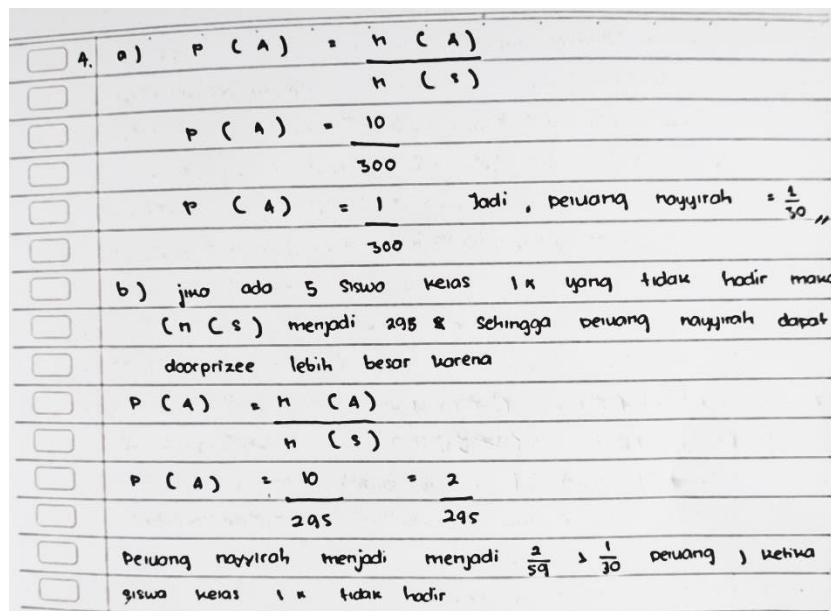 4. a) P ( A ) = n ( A ) / n ( S )
P ( A ) = 10 / 300
P ( A ) = 1 / 300 Jadi, peluang nayyirah = 1/30 //
b) jika ada 5 siswa kelas IX yang tidak hadir maka
(n ( S ) menjadi 295 & Sehingga peluang nayyirah dapat
doorprizee lebih besar karena
P ( A ) = n ( A ) / n ( S )
P ( A ) = 10 / 295 = 2 / 295
Peluang nayyirah menjadi menjadi 2/59 > 1/30 peluang , ketika
siswa kelas IX tidak hadir